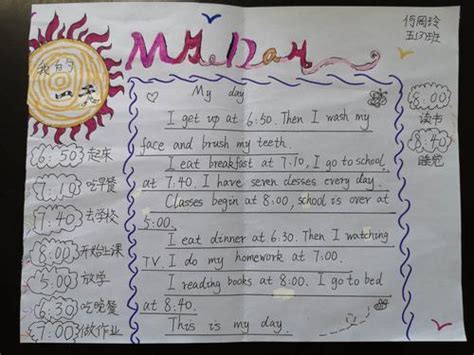 My Day
五(3)班
我的
一天
My day
I get up at 6:50. Then I wash my
face and brush my teeth.
I eat breakfast at 7.10, I go to school
at 7:40. I have seven clesses every day.
Classes begin at 8:00, school is over at
5:00.
I eat dinner at 6.30. Then I watching
TV. I do my homework at 7:00.
I reading books at 8:00. I go to bed
at 8:40.
This is my day.
6:50 起床
7:10 吃早餐
7:40 去学校
8:00 开始上课
5:00 放学
6:30 吃晚餐
7:00 做作业
8:00
读书
8:40
睡觉